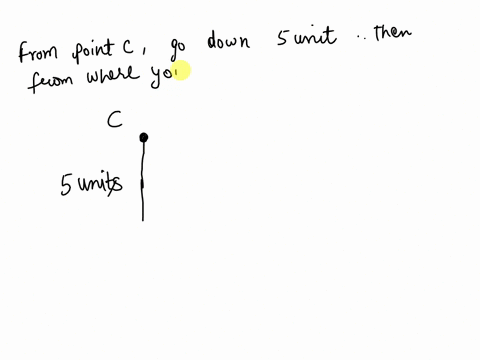 from point C, go down 5 unit .. then
from where you
C
5 units